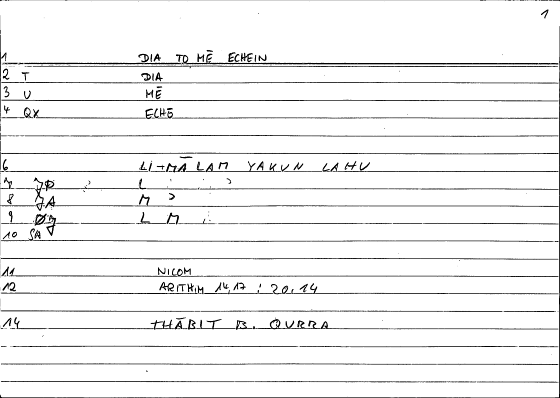 1
1 DIA TO MĒ ECHEIN
2 T DIA
3 U MĒ
4 QX ECHĒ
6 LI-MĀ LAM YAKUN LAHU
7 L
8 M
9 L M
10 SA
11 NICOM
12 ARITHM 14,17 : 20,14
14 THĀBIT B. QURRA